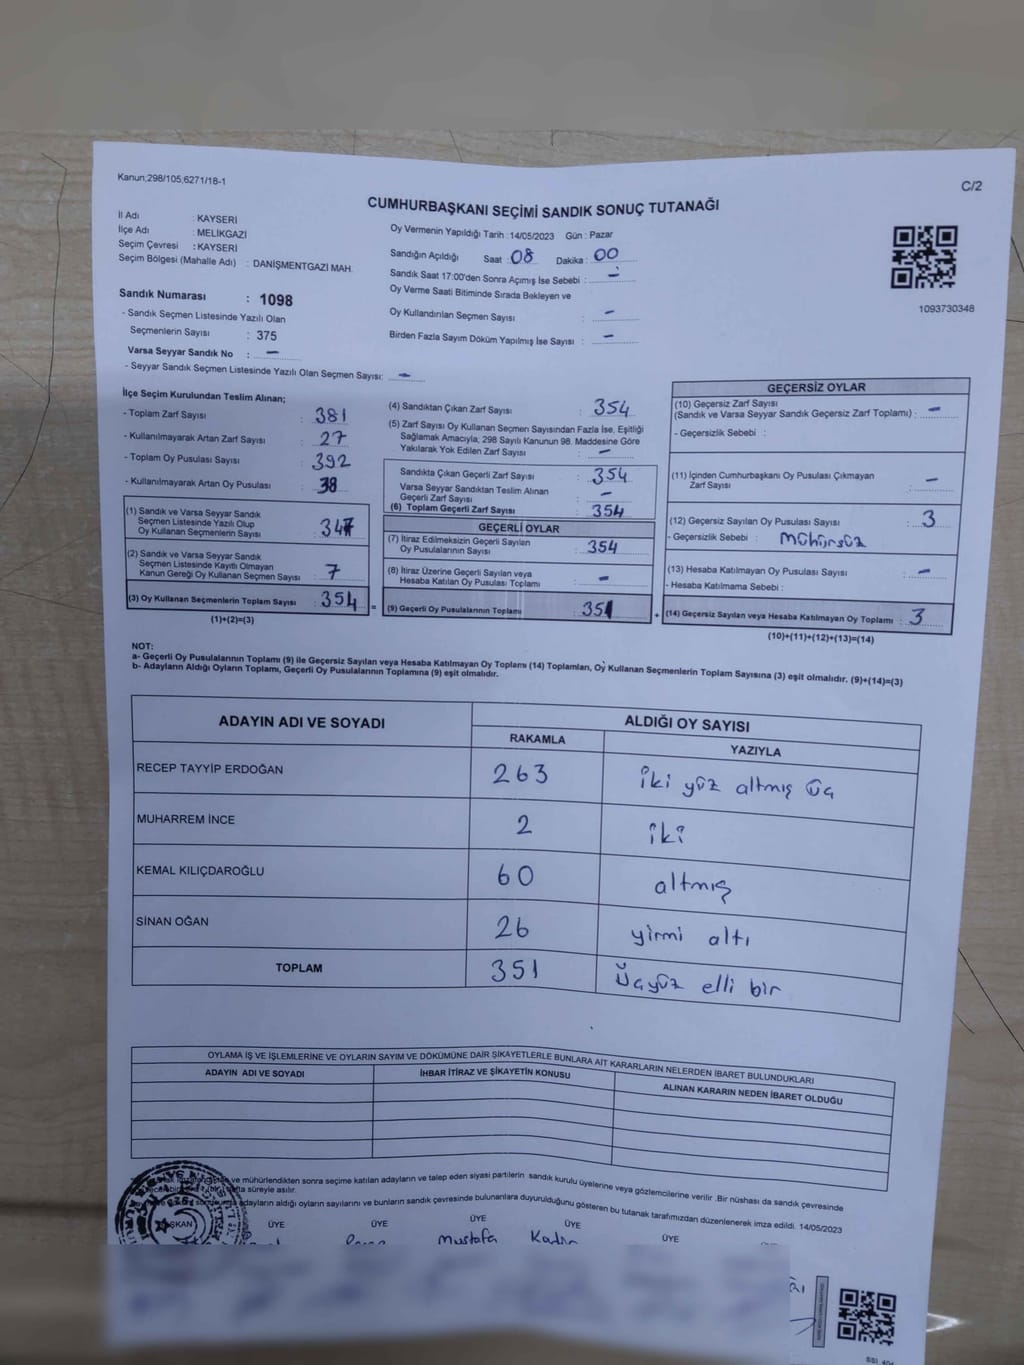 Kanun;298/105;6271/18-1
C/2
CUMHURBAŞKANI SEÇİMİ SANDIK SONUÇ TUTANAĞI
İl Adı : KAYSERİ
İlçe Adı : MELİKGAZİ
Seçim Çevresi : KAYSERİ
Seçim Bölgesi (Mahalle Adı) : DANİŞMENTGAZİ MAH.
Sandık Numarası : 1098
- Sandık Seçmen Listesinde Yazılı Olan
Seçmenlerin Sayısı : 375
Varsa Seyyar Sandık No : -
- Seyyar Sandık Seçmen Listesinde Yazılı Olan Seçmen Sayısı: -
Oy Vermenin Yapıldığı Tarih : 14/05/2023 Gün : Pazar
Sandığın Açıldığı Saat : 08 Dakika : 00
Sandık Saat 17:00'den Sonra Açımış İse Sebebi : -
Oy Verme Saati Bitiminde Sırada Bekleyen ve
Oy Kullandırılan Seçmen Sayısı : -
Birden Fazla Sayım Döküm Yapılmış İse Sayısı : -
1093730348
İlçe Seçim Kurulundan Teslim Alınan;
- Toplam Zarf Sayısı : 381
- Kullanılmayarak Artan Zarf Sayısı : 27
- Toplam Oy Pusulası Sayısı : 392
- Kullanılmayarak Artan Oy Pusulası : 38
(1) Sandık ve Varsa Seyyar Sandık
Seçmen Listesinde Yazılı Olup
Oy Kullanan Seçmenlerin Sayısı : 347
(2) Sandık ve Varsa Seyyar Sandık
Seçmen Listesinde Kayıtlı Olmayan
Kanun Gereği Oy Kullanan Seçmen Sayısı : 7
(3) Oy Kullanan Seçmenlerin Toplam Sayısı : 354
(1)+(2)=(3)
(4) Sandıktan Çıkan Zarf Sayısı : 354
(5) Zarf Sayısı Oy Kullanan Seçmen Sayısından Fazla İse, Eşitliği
Sağlamak Amacıyla; 298 Sayılı Kanunun 98. Maddesine Göre
Yakılarak Yok Edilen Zarf Sayısı : -
Sandıkta Çıkan Geçerli Zarf Sayısı : 354
Varsa Seyyar Sandıktan Teslim Alınan
Geçerli Zarf Sayısı : -
(6) Toplam Geçerli Zarf Sayısı : 354
GEÇERLİ OYLAR
(7) İtiraz Edilmeksizin Geçerli Sayılan
Oy Pusulalarının Sayısı : 354
(8) İtiraz Üzerine Geçerli Sayılan veya
Hesaba Katılan Oy Pusulası Toplamı : -
(9) Geçerli Oy Pusulalarının Toplamı : 351
GEÇERSİZ OYLAR
(10) Geçersiz Zarf Sayısı
(Sandık ve Varsa Seyyar Sandık Geçersiz Zarf Toplamı) : -
- Geçersizlik Sebebi :
(11) İçinden Cumhurbaşkanı Oy Pusulası Çıkmayan
Zarf Sayısı : -
(12) Geçersiz Sayılan Oy Pusulası Sayısı : 3
- Geçersizlik Sebebi : Mühürsüz
(13) Hesaba Katılmayan Oy Pusulası Sayısı : -
- Hesaba Katılmama Sebebi :
(14) Geçersiz Sayılan veya Hesaba Katılmayan Oy Toplamı : 3
(10)+(11)+(12)+(13)=(14)
NOT:
a- Geçerli Oy Pusulalarının Toplamı (9) ile Geçersiz Sayılan veya Hesaba Katılmayan Oy Toplamı (14) Toplamları, Oy Kullanan Seçmenlerin Toplam Sayısına (3) eşit olmalıdır. (9)+(14)=(3)
b- Adayların Aldığı Oyların Toplamı, Geçerli Oy Pusulalarının Toplamına (9) eşit olmalıdır.
ADAYIN ADI VE SOYADI ALDIĞI OY SAYISI
RAKAMLA YAZIYLA
RECEP TAYYİP ERDOĞAN 263 iki yüz altmış üç
MUHARREM İNCE 2 iki
KEMAL KILIÇDAROĞLU 60 altmış
SİNAN OĞAN 26 yirmi altı
TOPLAM 351 üçyüz elli bir
OYLAMA İŞ VE İŞLEMLERİNE VE OYLARIN SAYIM VE DÖKÜMÜNE DAİR ŞİKAYETLERLE BUNLARA AİT KARARLARIN NELERDEN İBARET BULUNDUKLARI
ADAYIN ADI VE SOYADI İHBAR İTİRAZ VE ŞİKAYETİN KONUSU ALINAN KARARIN NEDEN İBARET OLDUĞU
ve mühürlendikten sonra seçime katılan adayların ve talep eden siyasi partilerin sandık kurulu üyelerine veya gözlemcilerine verilir .Bir nüshası da sandık çevresinde
süreyle asılır.
adayların aldığı oyların sayılarını ve bunların sandık çevresinde bulunanlara duyurulduğunu gösteren bu tutanak tarafımızdan düzenlenerek imza edildi. 14/05/2023
BAŞKAN ÜYE ÜYE ÜYE ÜYE ÜYE
Mustafa Kadir